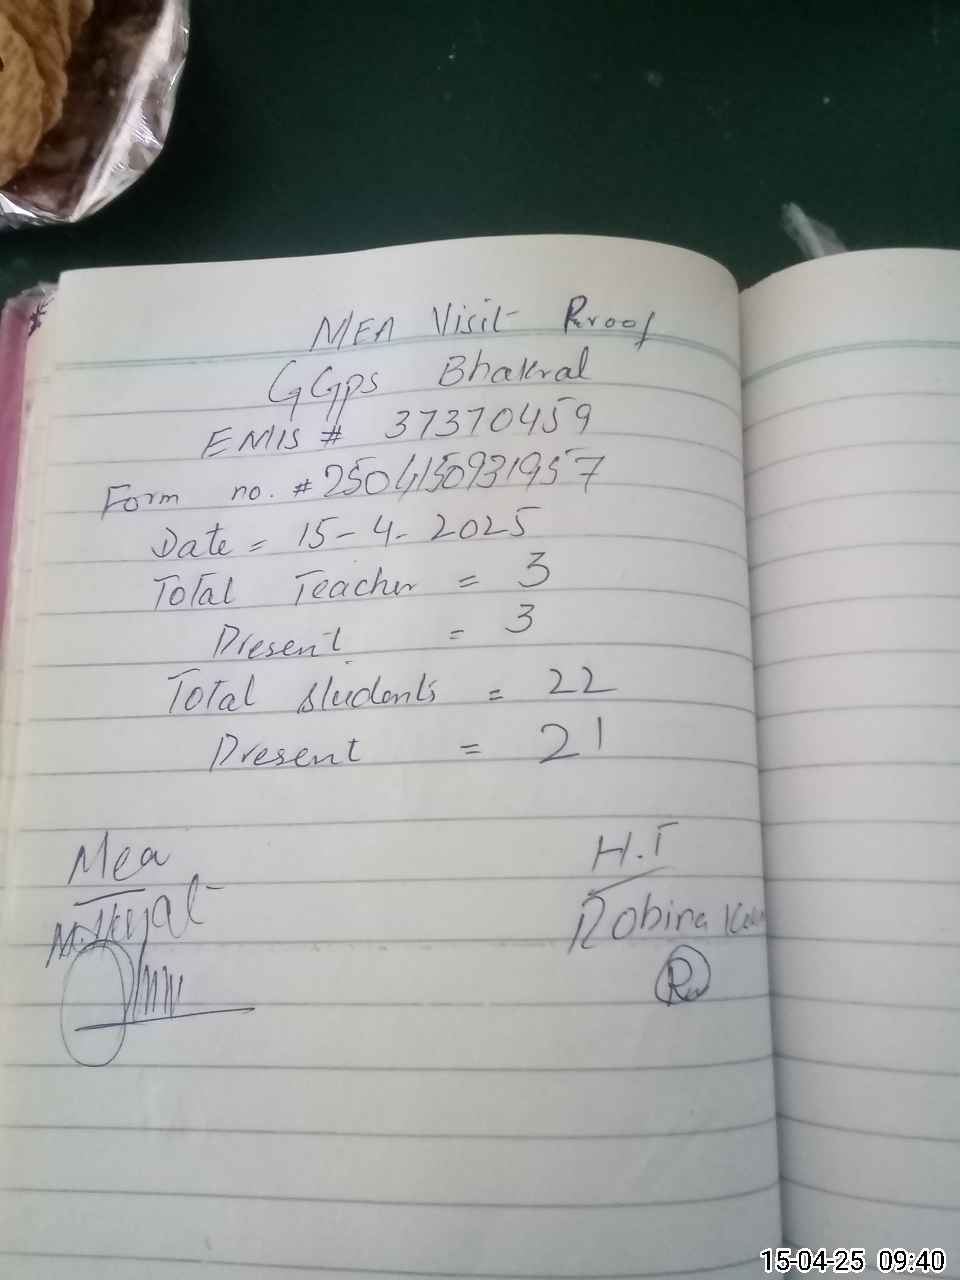 MEA Visit Proof
GGps Bhakral
EMIS # 37370459
Form no. # 2504150931957
Date = 15-4-2025
Total Teacher = 3
Present = 3
Total students = 22
Present = 21
Mea
H.T
Robina
15-04-25 09:40